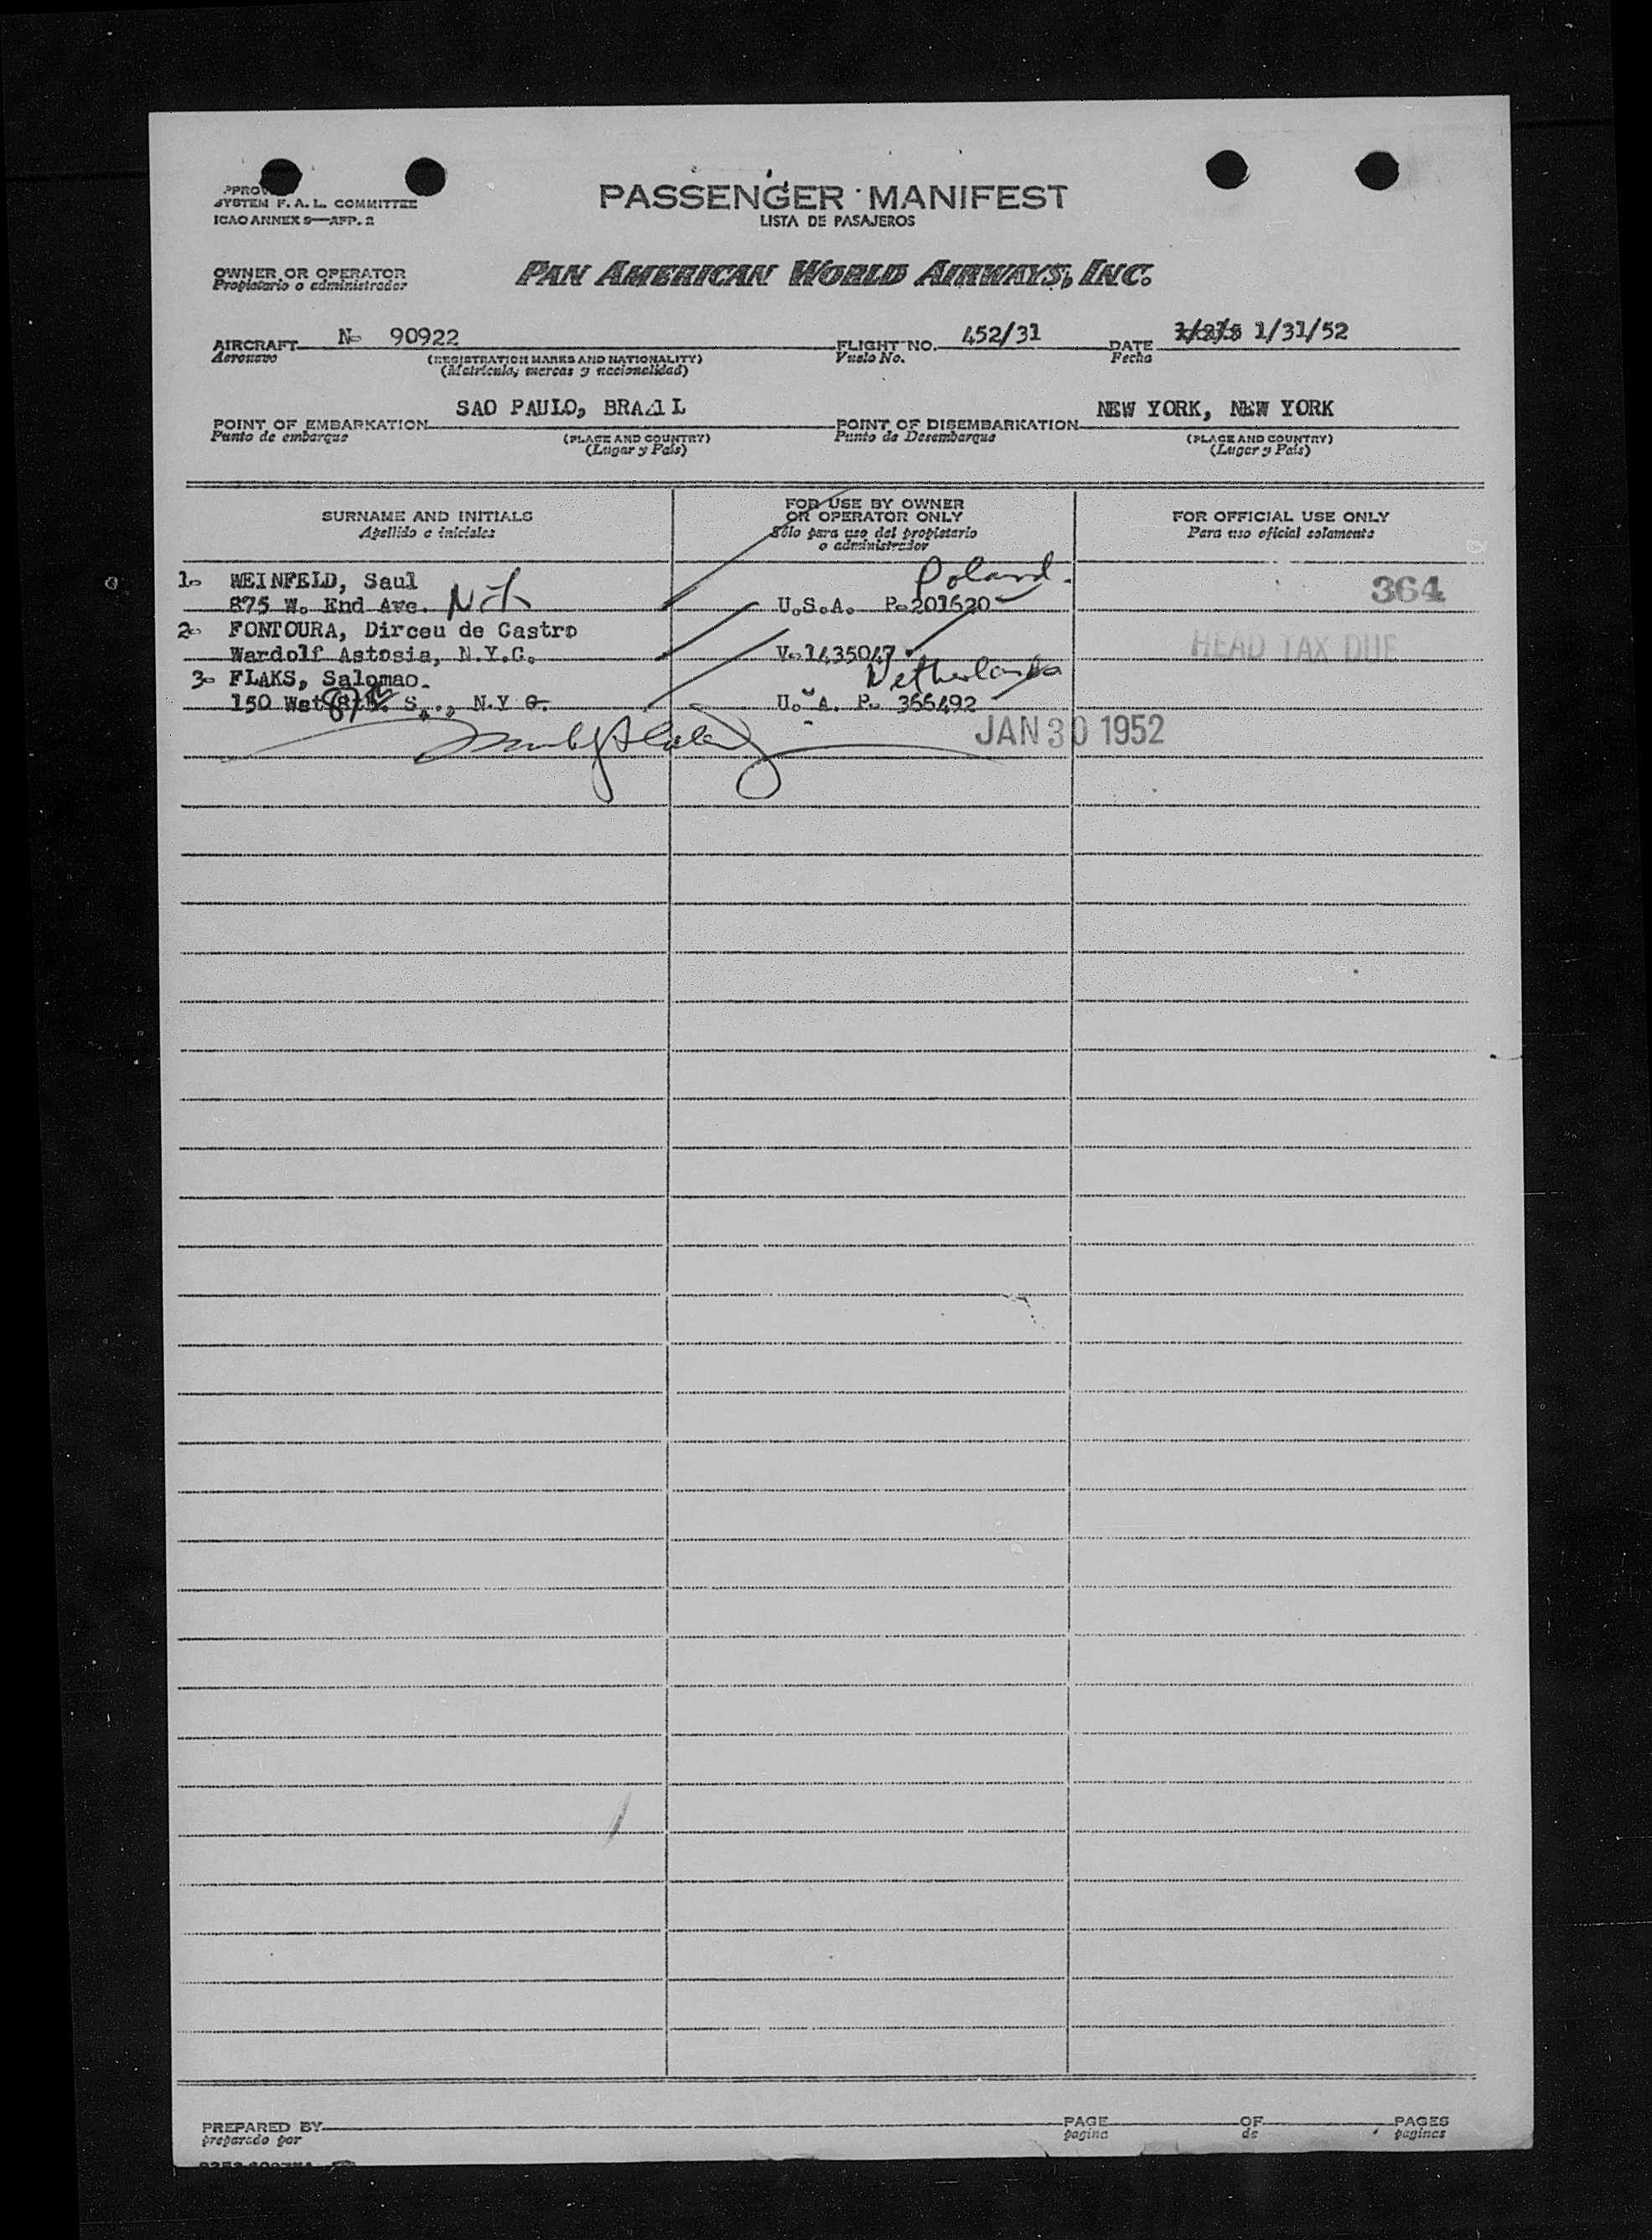 PASSENGER MANIFEST
LISTA DE PASAJEROS
SYSTEM F. A. L. COMMITTEE
ICAO ANNEX 9—APP. 2
OWNER OR OPERATOR
Propietario o administrador
PAN AMERICAN WORLD AIRWAYS, INC.
AIRCRAFT N- 90922
Aeronave
(REGISTRATION MARKS AND NATIONALITY)
(Matrícula, marcas y nacionalidad)
FLIGHT NO. 452/31
Vuelo No.
DATE 1/31/52
Fecha
POINT OF EMBARKATION SAO PAULO, BRAZIL
Punto de embarque
(PLACE AND COUNTRY)
(Lugar y País)
POINT OF DISEMBARKATION NEW YORK, NEW YORK
Punto de Desembarque
(PLACE AND COUNTRY)
(Lugar y País)
SURNAME AND INITIALS
Apellido e iniciales
FOR USE BY OWNER
OR OPERATOR ONLY
Sólo para uso del propietario
o administrador
FOR OFFICIAL USE ONLY
Para uso oficial solamente
1- WEINFELD, Saul Poland.
875 W. End Ave. U.S.A. P-201620 364
2- FONTOURA, Dirceu de Castro
Wardolf Astosia, N.Y.C. V-1435047 HEAD TAX DUE
3- FLAKS, Salomao. Netherlands
150 Wst 87 S .., N.Y C. U. A. P- 366492
JAN 30 1952
PREPARED BY
preparado por
PAGE OF PAGES
pagina de paginas